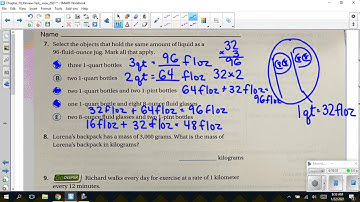 Chapter_10_Review-Test_new_2021 - SMART Notebook
Name
7. Select the objects that hold the same amount of liquid as a
96-fluid-ounce jug. Mark all that apply.
32
x 3
96
three 1-quart bottles 3qt = 96 floz
B two 1-quart bottles 2qt = 64 floz 32x2
two 1-quart bottles and two 1-pint bottles 64floz + 32floz =
96floz
one 1-quart bottle and eight 8-ounce fluid glasses
32floz + 64floz = 96floz
1qt = 32floz
E two 8-ounce fluid glasses and two 1-pint bottles
16floz + 32floz = 48floz
8. Lorena's backpack has a mass of 3,000 grams. What is the mass of
Lorena's backpack in kilograms?
kilograms
9. GO DEEPER Richard walks every day for exercise at a rate of 1 kilometer
every 12 minutes.